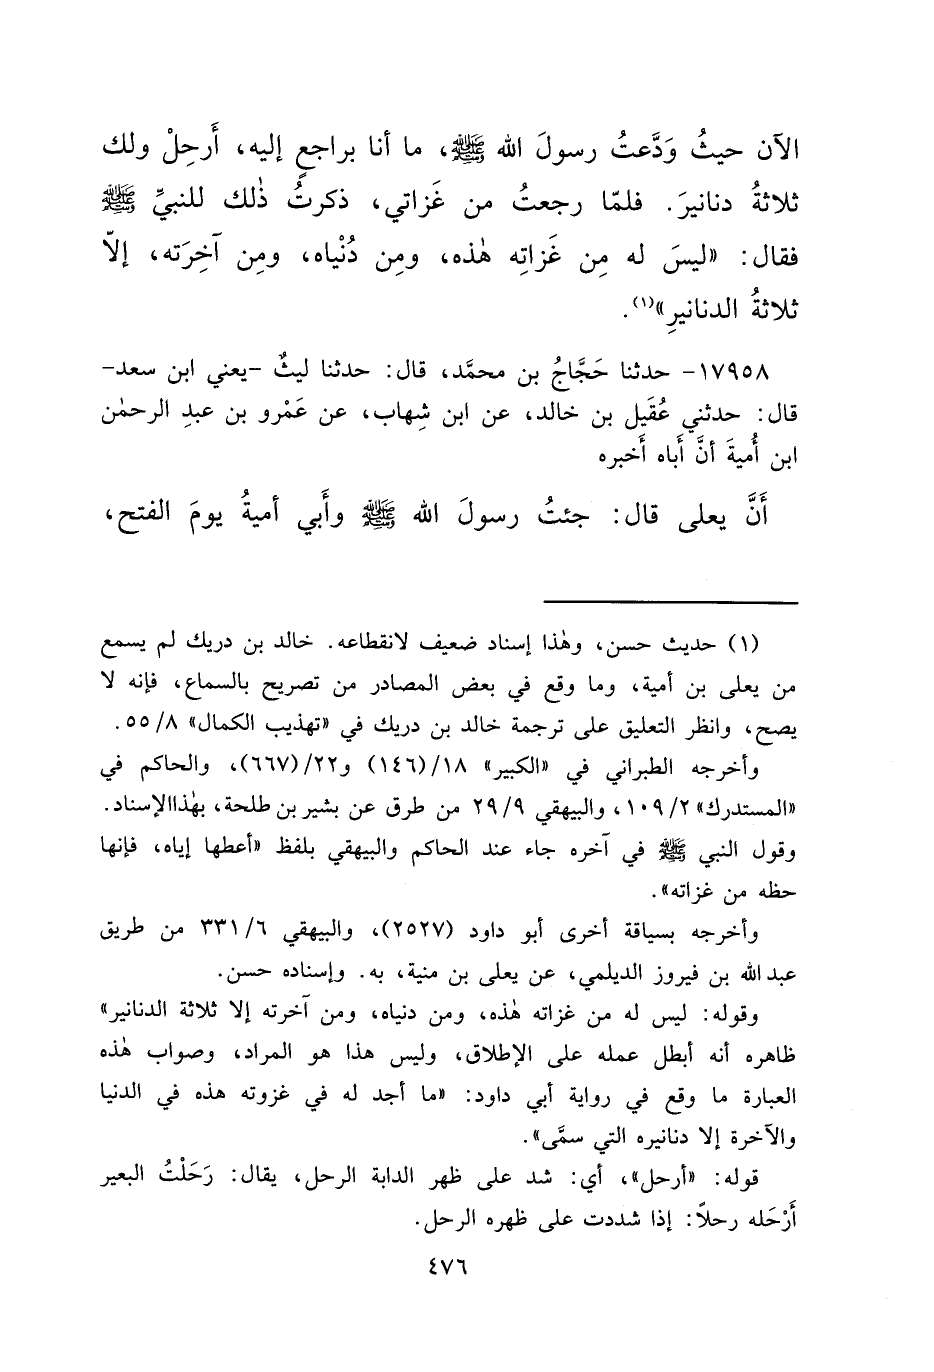 الآن حيثُ وَدَّعتُ رسولَ الله ﷺ، ما أنا براجعٍ إليه، أَرحِلْ ولك
ثلاثةُ دنانيرَ. فلمّا رجعتُ من غَزاتي، ذكرتُ ذٰلك للنبيِّ ﷺ
فقال: «ليسَ له مِن غَزاتِه هٰذه، ومِن دُنْياه، ومِن آخِرَته، إلاّ
ثلاثةُ الدنانيرِ»(١).
١٧٩٥٨- حدثنا حَجَّاجُ بن محمَّد، قال: حدثنا ليثٌ -يعني ابن سعد-
قال: حدثني عُقَيل بن خالد، عن ابن شِهاب، عن عَمْرو بن عبدِ الرحمٰن
ابن أُميةَ أنَّ أَباه أَخبره
أَنَّ يعلى قال: جئتُ رسولَ الله ﷺ وأَبي أميةُ يومَ الفتح،
(١) حديث حسن، وهٰذا إسناد ضعيف لانقطاعه. خالد بن دريك لم يسمع
من يعلى بن أمية، وما وقع في بعض المصادر من تصريح بالسماع، فإنه لا
يصح، وانظر التعليق على ترجمة خالد بن دريك في «تهذيب الكمال» ٥٥/٨.
وأخرجه الطبراني في «الكبير» ١٨/(١٤٦) و٢٢/(٦٦٧)، والحاكم في
«المستدرك» ١٠٩/٢، والبيهقي ٢٩/٩ من طرق عن بشير بن طلحة، بهٰذا الإسناد.
وقول النبي ﷺ في آخره جاء عند الحاكم والبيهقي بلفظ «أعطها إياه، فإنها
حظه من غزاته».
وأخرجه بسياقة أخرى أبو داود (٢٥٢٧)، والبيهقي ٣٣١/٦ من طريق
عبد الله بن فيروز الديلمي، عن يعلى بن منية، به. وإسناده حسن.
وقوله: ليس له من غزاته هٰذه، ومن دنياه، ومن آخرته إلا ثلاثة الدنانير»
ظاهره أنه أبطل عمله على الإطلاق، وليس هذا هو المراد، وصواب هٰذه
العبارة ما وقع في رواية أبي داود: «ما أجد له في غزوته هذه في الدنيا
والآخرة إلا دنانيره التي سمَّى».
قوله: «أرحل»، أي: شد على ظهر الدابة الرحل، يقال: رَحَلْتُ البعير
أَرْحَله رحلاً: إذا شددت على ظهره الرحل.
٤٧٦